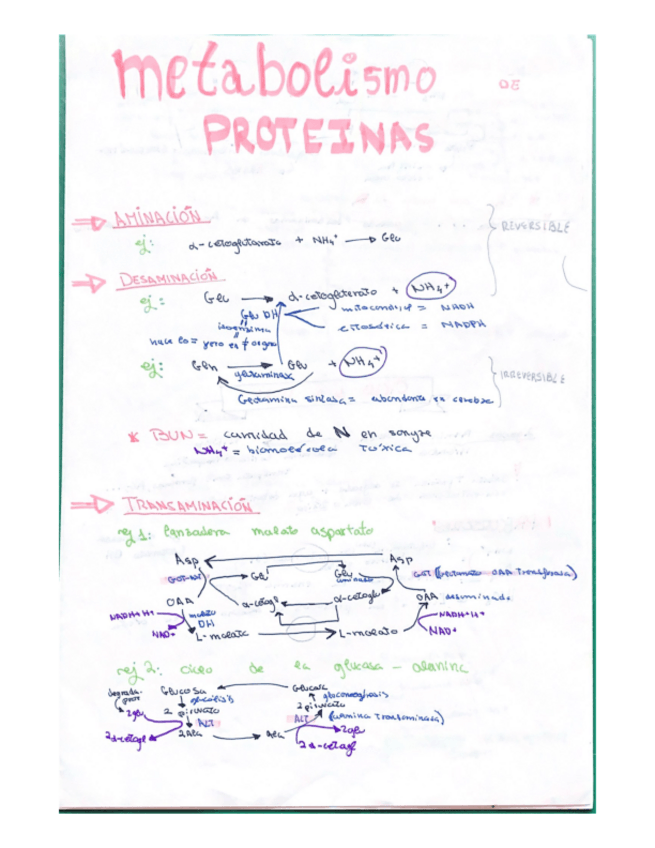 metabolismo DE
PROTEINAS
AMINACIÓN
ej: α-cetoglutarato + NH₄⁺ → Glu
REVERSIBLE
DESAMINACIÓN
ej: Glu → α-cetoglutarato + NH₄⁺
Glu DH
mitocondrial = NADH
isoenzima
citosólica = NADPH
hace lo = pero en ≠ organo
ej: Gln → Glu + NH₄⁺
glutaminasa
IRREVERSIBLE
Glutamina sintasa = abundante en cerebro
* BUN = cantidad de N en sangre
NH₄⁺ = biomolécula tóxica
TRANSAMINACIÓN
ej 1: lanzadera malato aspartato
Asp Asp
Glu Glu
GOT (glutamato OAA Transferasa)
OAA α-cetogl α-cetogl OAA
NADH+H+ malato DH NADH+H+
NAD+ L-malato → L-malato NAD+
ej 2: ciclo de la glucosa - alanina
Glucosa Glucosa
glucólisis gluconeogénesis
2 piruvato 2 piruvato
ALT ALT (alanina Transaminasa)
2 α-cetogl 2 Ala → Ala 2 α-cetogl